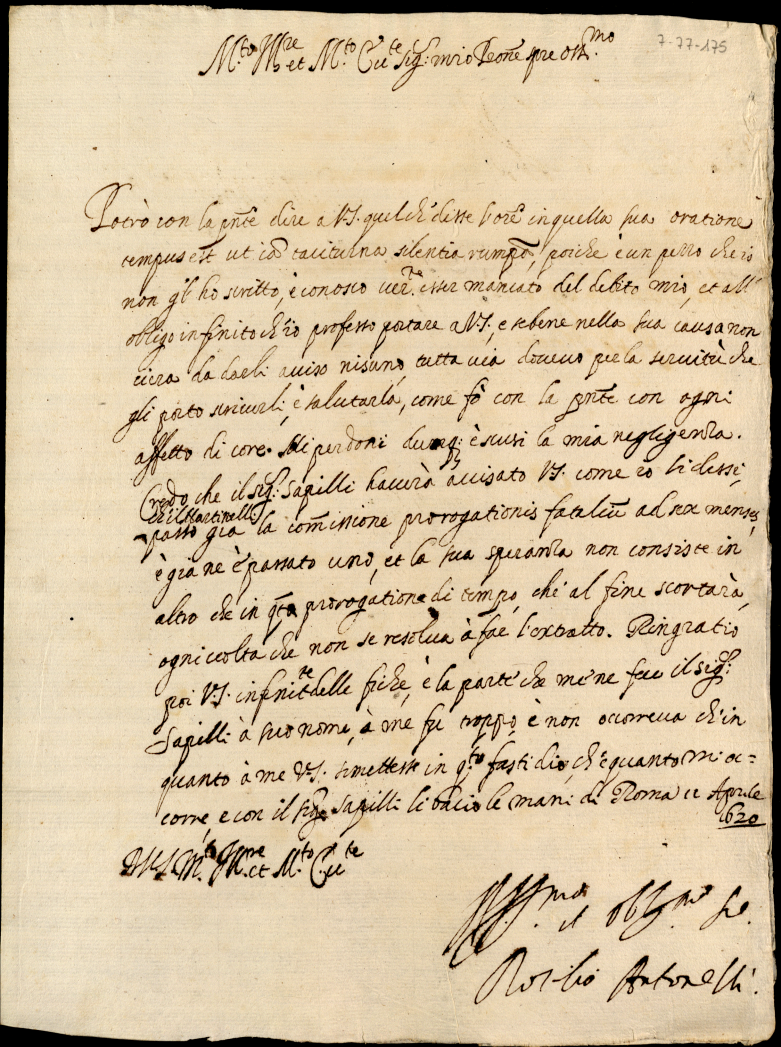 7-77-175
M.to Ill.re et M.to Ecc.te Sig: mio Prone sre oss.mo
Potrò con la pnte dire a V.S. quel ch'disse in quella sua oratione
tempus est ut ia taciturna silentia rumpa, poiche è un pezzo che io
non gl'ho scritto, è conosco ver.te esser mancato del debito mio, et all'
obligo infinito ch'io professo portare a V.S., e sebene nella sua causa non
vi era da darli aviso nisuno, tutta via dovevo per la servitù che
gli porto scriverli, è salutarla, come fò con la pnte con ogni
affetto di core. Mi perdoni dunq; è scusi la mia negligenza.
Credo che il sig: Sapilli haverà avisato V.S. come io li dissi,
ch'il Martinelli
passò già la comissione prorogationis fataliu ad sex menses,
è già ne è passato uno, et la sua speranza non consiste in
altro che in qta prorogatione di tempo, che al fine scortarà,
ogni volta che non se resolva à fare l'extratto. Ringratio
poi V.S. infinit.te delle fiche, è la parte che me ne fece il sig:
Sapilli à suo nome, à me fu troppo, è non occorreva ch'in
quanto à me V.S. si mettesse in q.to fastidio, ch'è quanto mi oc=
corre, e con il sig.re Sapilli li bacio le mani di Roma 11 Aprile
1620
Di V.S. M.to Ill.re et M.to Ecc.te
Aff.mo et Obl.mo Se.
Antonelli